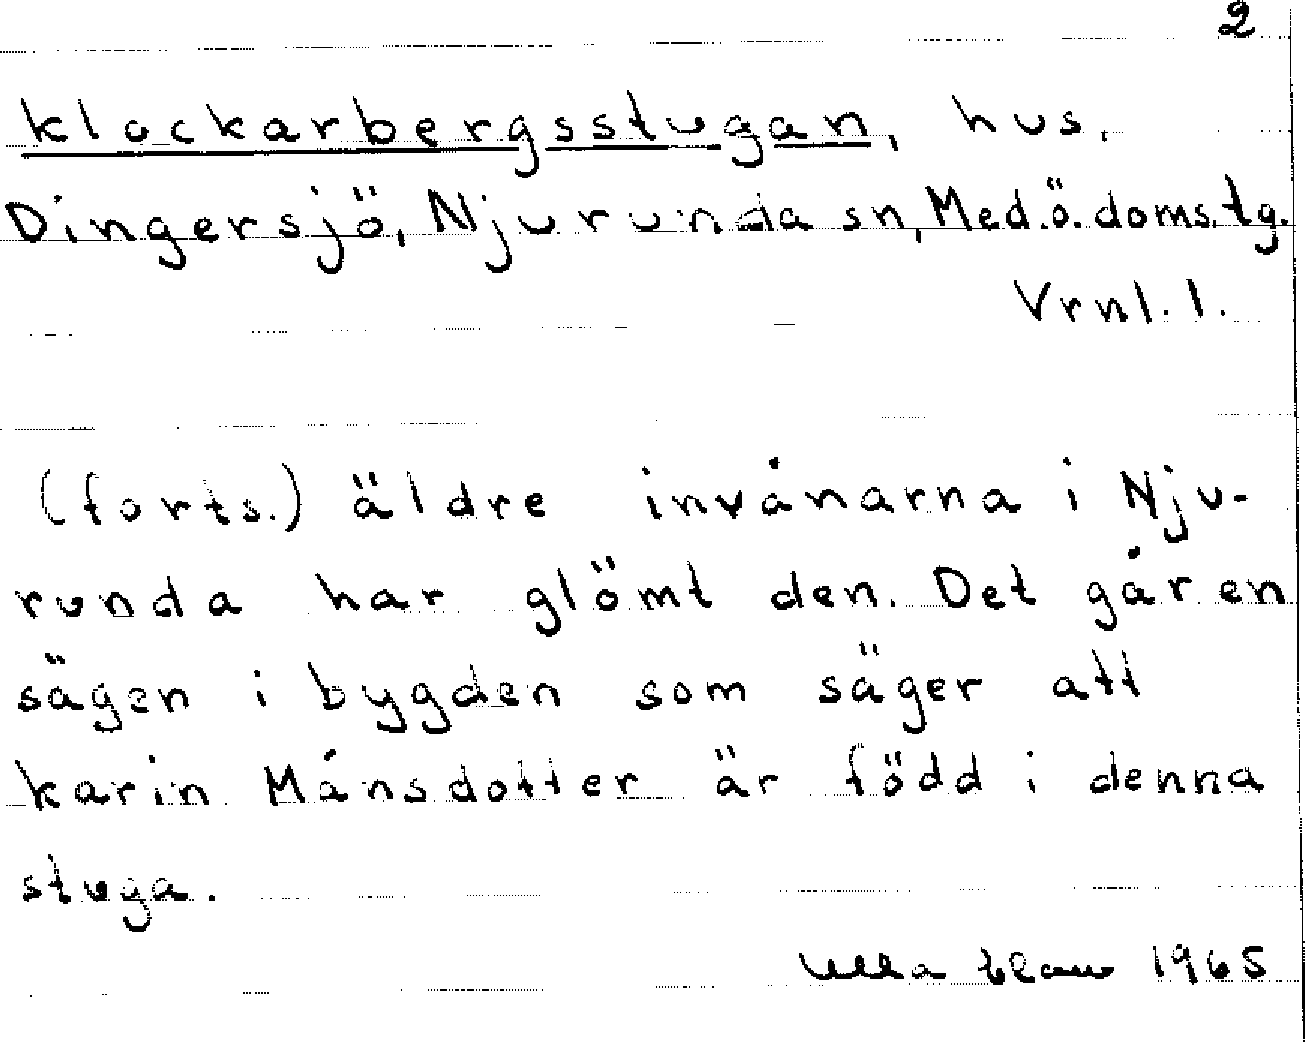 2
Klockarbergsstugan, hus.
Dingersjö, Njurunda sn, Med.ö.doms.tg.
Vrnl.l.
(forts.) äldre invånarna i Nju-
runda har glömt den. Det går en
sägen i bygden som säger att
Karin Månsdotter är född i denna
stuga.
Ulla 1965